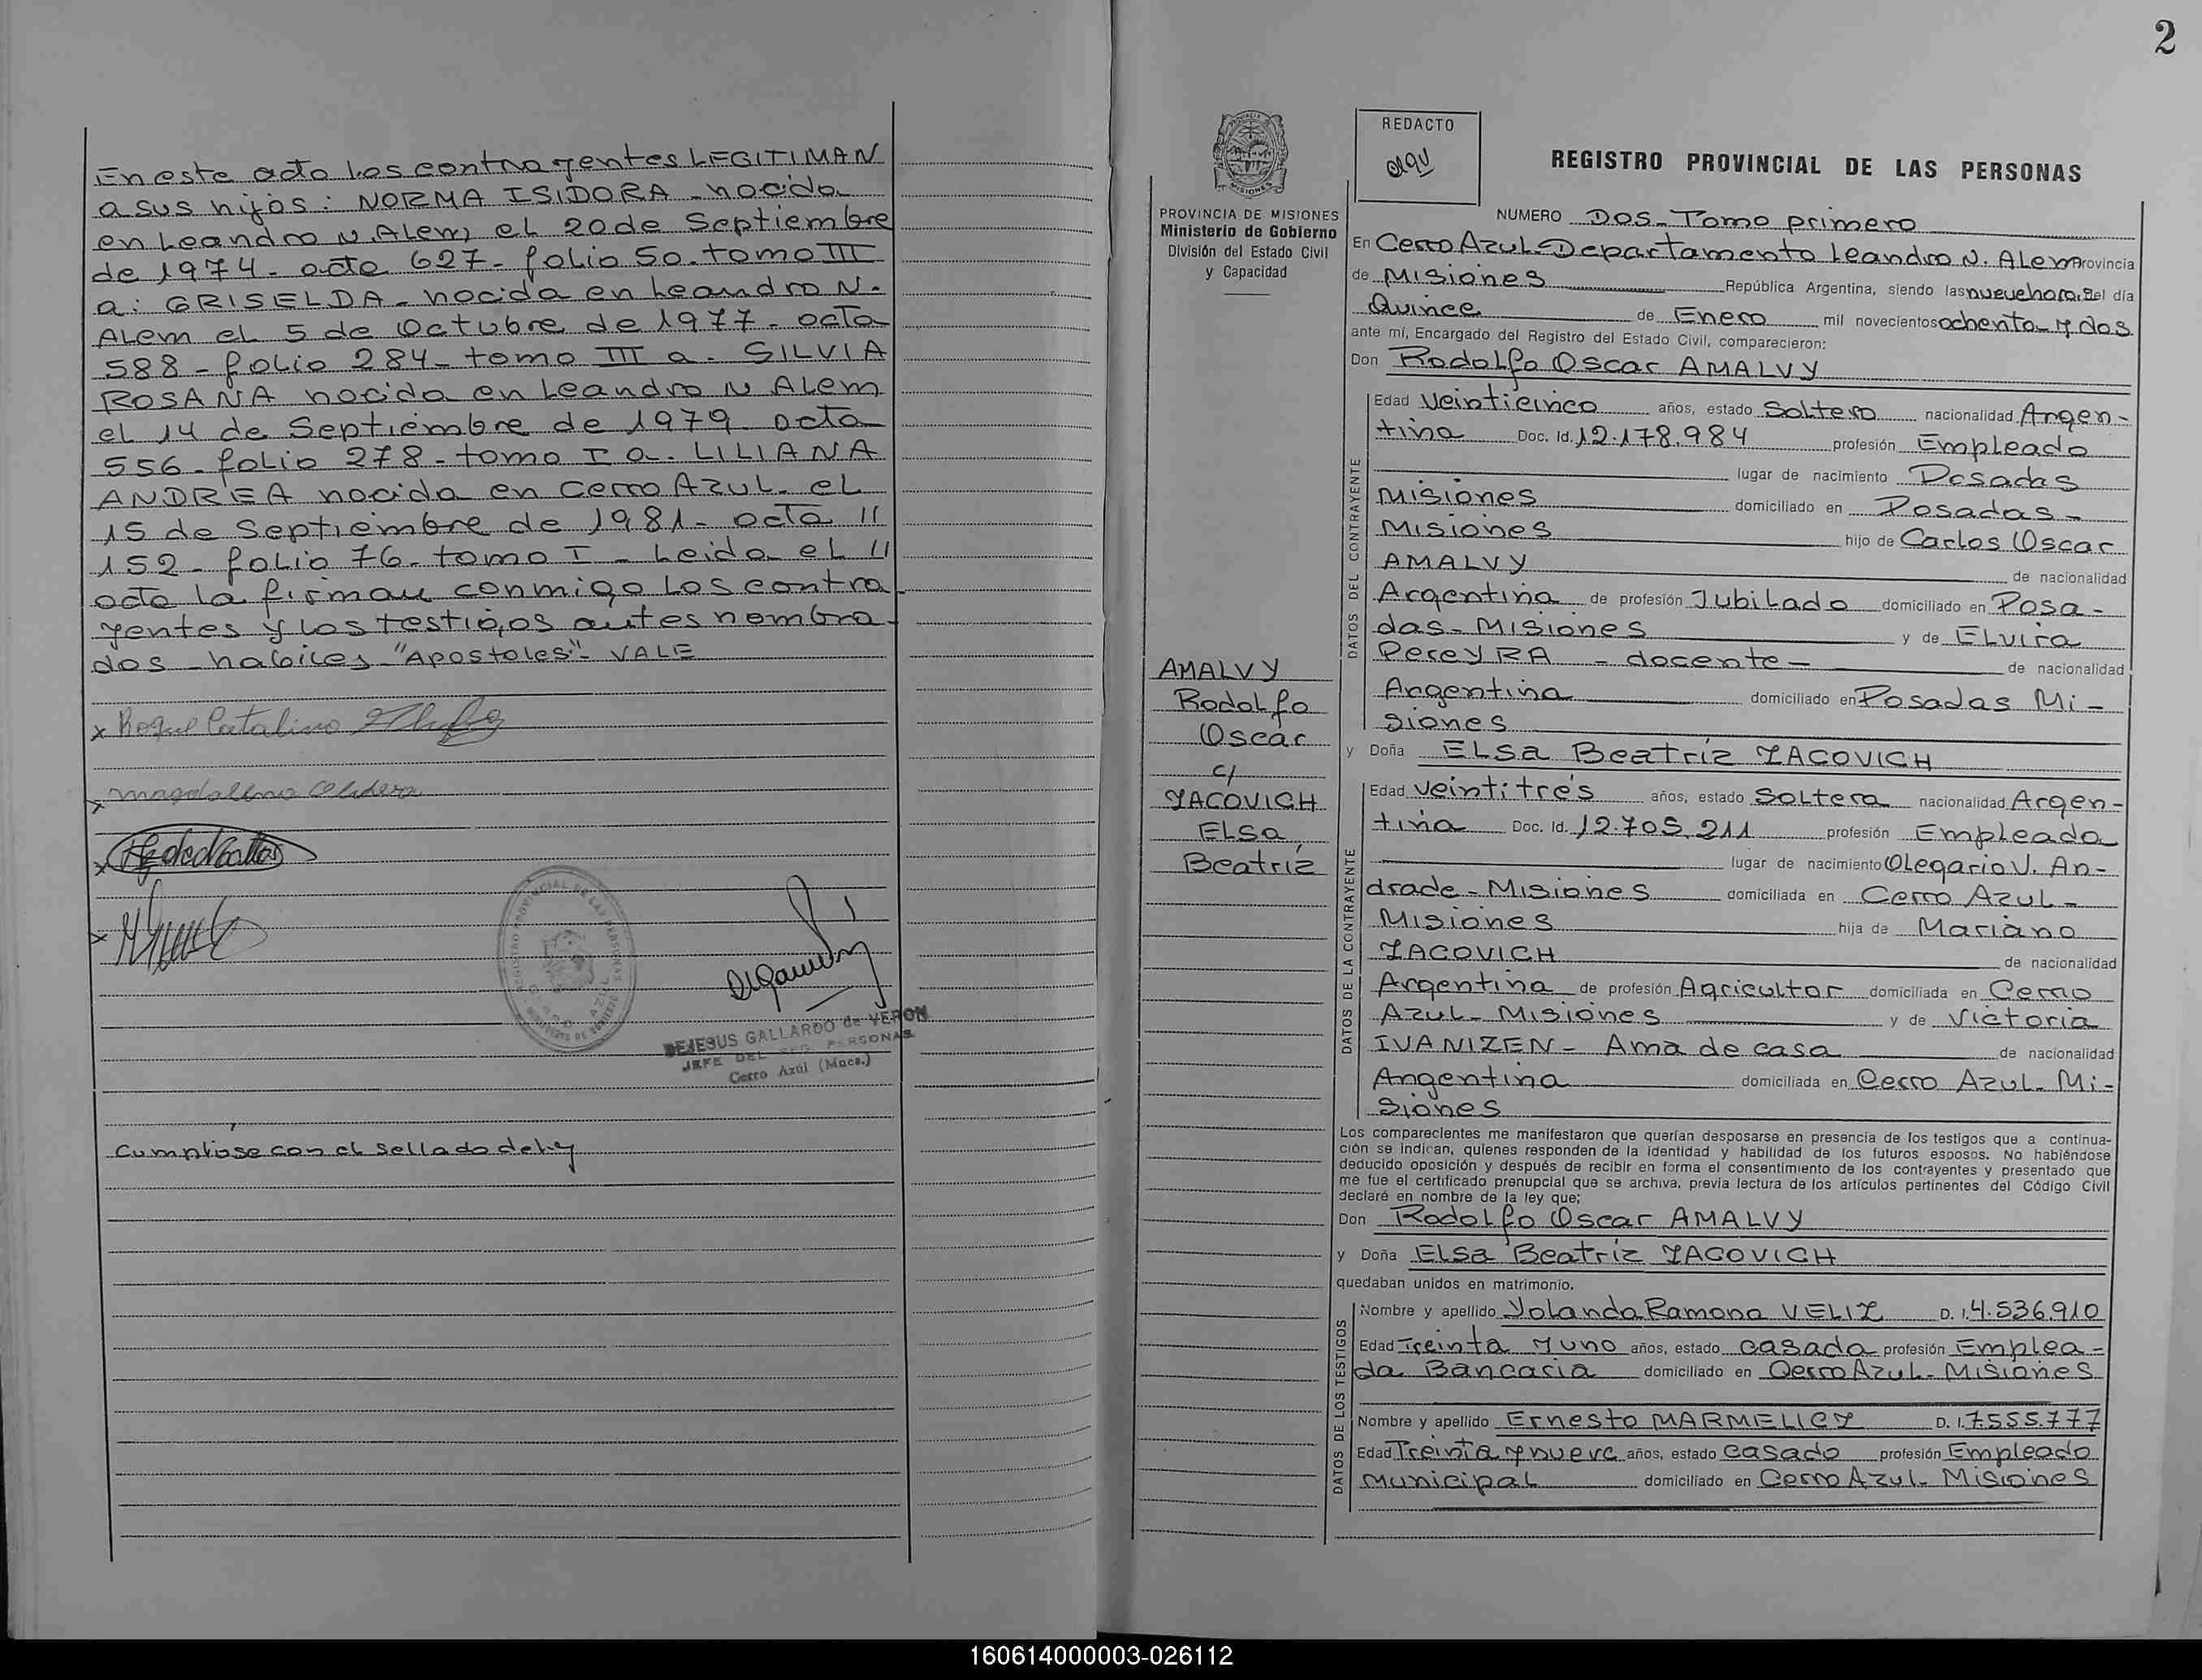 En este acto los contrayentes LEGITIMAN
a sus hijos: NORMA ISIDORA - nacida
en Leandro N. Alem, el 20 de Septiembre
de 1974 - acta 627 - folio 50 - tomo III
a: GRISELDA - nacida en Leandro N.
Alem el 5 de Octubre de 1977 - acta
588 - folio 284 - tomo III a - SILVIA
ROSANA nacida en Leandro N Alem
el 14 de Septiembre de 1979 acta
556 - folio 278 - tomo I a - LILIANA
ANDREA nacida en Cerro Azul - el
15 de Septiembre de 1981 - acta //
152 - folio 76 - tomo I - Leida el //
acta la firman conmigo los contra
yentes y los testigos antes nombra
dos - habiles "Apostoles" - VALE
x Roque Catalino
x Magdalena
DEJESUS GALLARDO de VERON
JEFE DEL REG. PERSONAS
Cerro Azúl (Mnes.)
Cumpliose con el sellado de ley
2
PROVINCIA DE MISIONES
Ministerio de Gobierno
División del Estado Civil
y Capacidad
REDACTO
REGISTRO PROVINCIAL DE LAS PERSONAS
NUMERO Dos - Tomo primero
En Cerro Azul - Departamento Leandro N. Alem Provincia
de Misiones República Argentina, siendo las nueve horas del día
Quince de Enero mil novecientos ochenta y dos
ante mí, Encargado del Registro del Estado Civil, comparecieron:
Don Rodolfo Oscar AMALVY
DATOS DEL CONTRAYENTE
Edad Veinticinco años, estado Soltero nacionalidad Argen-
tina Doc. Id. 12.178.984 profesión Empleado
lugar de nacimiento Posadas
Misiones domiciliado en Posadas -
Misiones hijo de Carlos Oscar
AMALVY de nacionalidad
Argentina de profesión Jubilado domiciliado en Posa-
das - Misiones y de Elvira
PereyRA - docente - de nacionalidad
Argentina domiciliado en Posadas Mi-
siones
AMALVY
Rodolfo
Oscar
c/
YACOVICH
Elsa
Beatríz
y Doña Elsa Beatríz YACOVICH
DATOS DE LA CONTRAYENTE
Edad veintitrés años, estado Soltera nacionalidad Argen-
tina Doc. Id. 12.705.211 profesión Empleada
lugar de nacimiento Olegario V. An-
drade - Misiones domiciliada en Cerro Azul -
Misiones hija de Mariano
YACOVICH de nacionalidad
Argentina de profesión Agricultor domiciliada en Cerro
Azul - Misiones y de Victoria
IVANIZEN - Ama de casa de nacionalidad
Argentina domiciliada en Cerro Azul - Mi-
siones
Los comparecientes me manifestaron que querían desposarse en presencia de los testigos que a continua-
ción se indican, quienes responden de la identidad y habilidad de los futuros esposos. No habiéndose
deducido oposición y después de recibir en forma el consentimiento de los contrayentes y presentado que
me fue el certificado prenupcial que se archiva, previa lectura de los artículos pertinentes del Código Civil
declaré en nombre de la ley que;
Don Rodolfo Oscar AMALVY
y Doña Elsa Beatríz YACOVICH
quedaban unidos en matrimonio.
DATOS DE LOS TESTIGOS
Nombre y apellido Yolanda Ramona VELIZ D. I. 4.536.910
Edad Treinta y uno años, estado casada profesión Emplea-
da Bancaria domiciliado en Cerro Azul - Misiones
Nombre y apellido Ernesto MARMELICZ D. I. 7.555.777
Edad Treinta y nueve años, estado casado profesión Empleado
Municipal domiciliado en Cerro Azul - Misiones
160614000003-026112